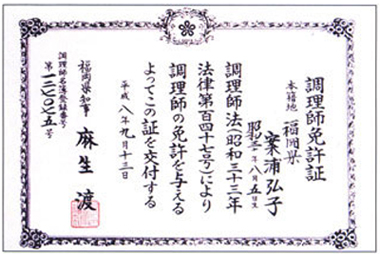 調理師免許証
本籍地 福岡県
業浦弘子
年八月五日生
調理師法(昭和三十三年
法律第百四十七号)により
調理師の免許を与える
よってこの証を交付する
平成八年九月十三日
福岡県知事 麻生渡
調理師名簿登録番号